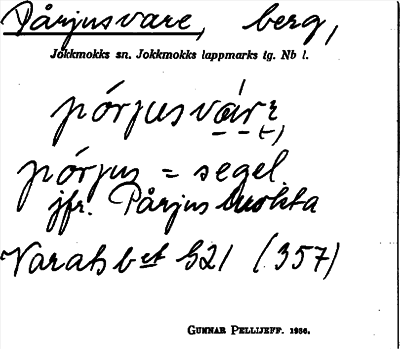 Pårjusvare, berg,
Jokkmokks sn. Jokkmokks lappmarks tg. Nb l.
pórjusvárɛ
(-)
pórjus = segel.
jfr. Pårjusluokta
Varats bet S21 (357)
GUNNAR PELLIJEFF. 1956.